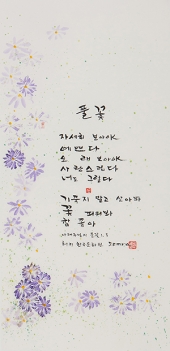 풀꽃
자세히 보아야
예쁘다
오래 보아야
사랑스럽다
너도 그렇다
기죽지 말고 살아봐
꽃 피워봐
참 좋아